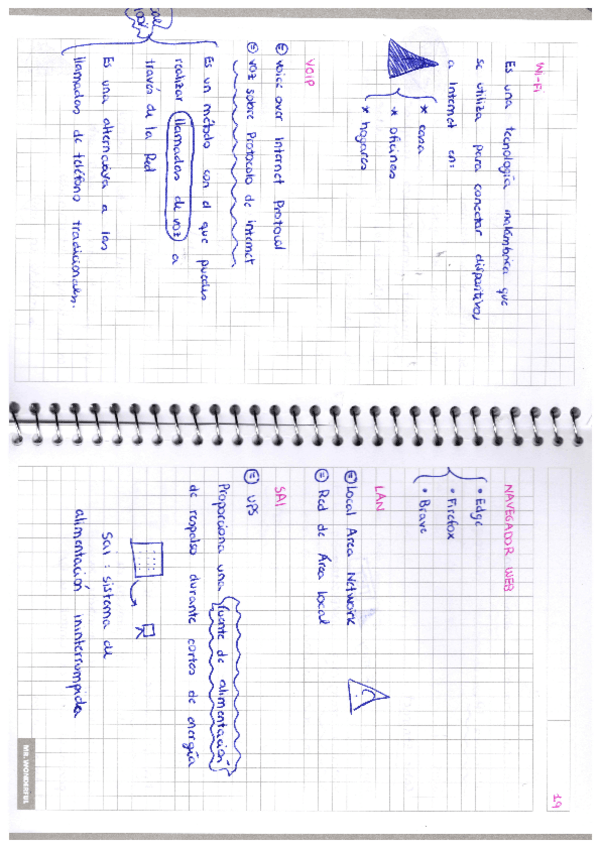 Wi-Fi
Es una tecnología inalámbrica que
se utiliza para conectar dispositivos
a Internet en:
* casa
* oficinas
* hogares
VOIP
E Voice over Internet Protocol
E Voz sobre Protocolo de internet
Es un método con el que puedes
realizar llamadas de voz a
través de la Red
Es una alternativa a las
llamadas de teléfono tradicionales.
19
NAVEGADOR WEB
• Edge
• Firefox
• Brave
LAN
E Local Area Network
E Red de Área local
SAI
E UPS
Proporciona una fuente de alimentación
de respaldo durante cortes de energía
Sai: sistema de
alimentación ininterrumpida
MR. WONDERFUL